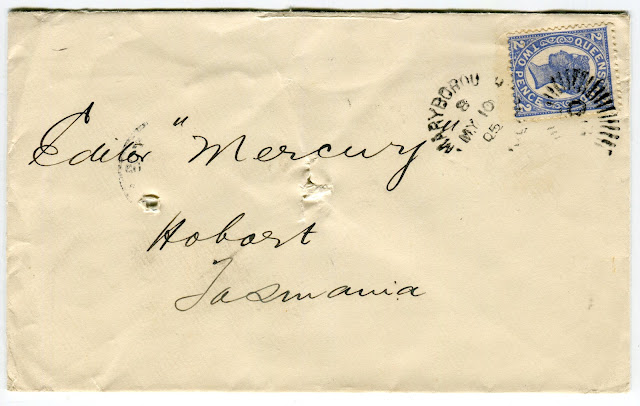 2 TWO PENCE 2
QUEENS
MARYBOROU
8
MY 10
05
Editor "Mercury"
Hobart
Tasmania